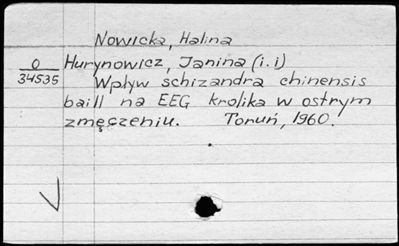 Nowicka, Halina
0
34535
Hurynowicz, Janina (i. i)
Wpływ schizandra chinensis
baill na EEG królika w ostrym
zmęczeniu. Toruń, 1960.